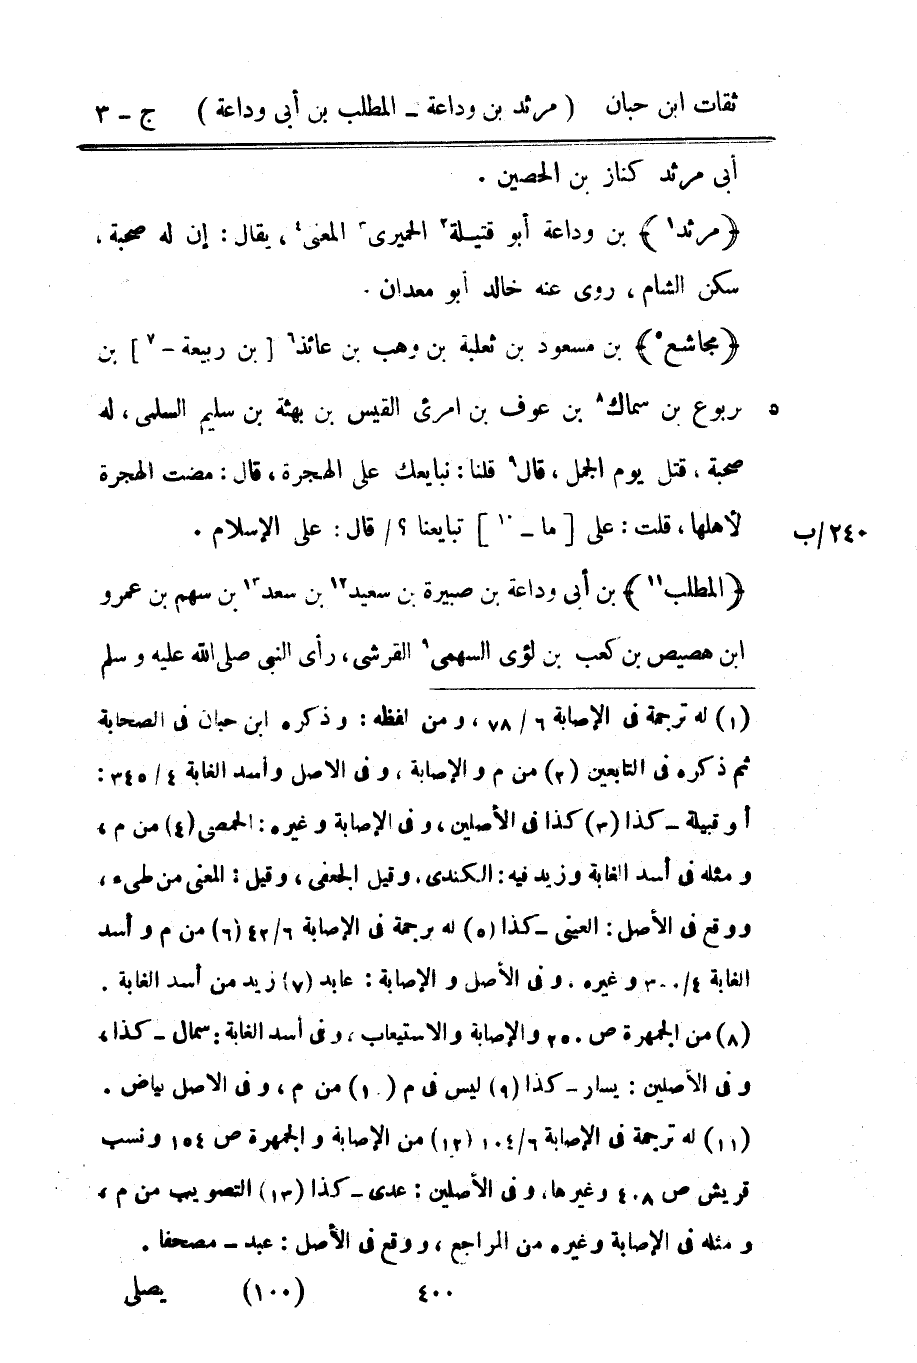 ثقات ابن حبان ( مرثد بن وداعة ــ المطلب بن أبى وداعة ) ج ــ ٣
أبى مرثد كناز بن الحصين .
﴿مرثد١﴾ بن وداعة أبو قتيلة٢ الحميرى٣ المعنى٤ ، يقال : إن له صحبة ،
سكن الشام ، روى عنه خالد أبو معدان .
﴿مجاشع٥﴾ بن مسعود بن ثعلبة بن وهب بن عائذ٦ [ بن ربيعة ــ٧ ] بن
٥ يربوع بن سماك٨ بن عوف بن امرئ القيس بن بهثة بن سليم السلمى ، له
صحبة ، قتل يوم الجمل ، قال٩ قلنا : نبايعك على الهجرة ، قال : مضت الهجرة
٢٤٠/ب لأهلها ، قلت : على [ ما ــ١٠ ] تبايعنا ؟/ قال : على الإسلام .
﴿المطلب١١﴾ بن أبى وداعة بن صبيرة بن سعيد١٢ بن سعد١٣ بن سهم بن عمرو
ابن هصيص بن كعب بن لؤى السهمى٩ القرشى ، رأى النبى صلى الله عليه و سلم
(١) له ترجمة فى الإصابة ٦/ ٧٨ ، و من لفظه : و ذكره ابن حبان فى الصحابة
ثم ذكره فى التابعين (٢) من م و الإصابة ، و فى الاصل و أسد الغابة ٤/ ٣٤٥ :
أو قبيلة ــ كذا (٣) كذا فى الأصلين ، و فى الإصابة و غيره : الحمصى (٤) من م ،
و مثله فى أسد الغابة و زيد فيه : الكندى . و قيل الجعفى ، و قيل : المعنى من طىء ،
و وقع فى الأصل : العينى ــ كذا (٥) له ترجمة فى الإصابة ٦/ ٤٢ (٦) من م و أسد
الغابة ٤/ ٣٠٠ و غيره . و فى الأصل و الإصابة : عابد (٧) زيد من أسد الغابة .
(٨) من الجمهرة ص ٢٥٠ و الإصابة و الاستيعاب ، و فى أسد الغابة : سمال ــ كذا ،
و فى الأصلين : يسار ــ كذا (٩) ليس فى م (١٠) من م ، و فى الاصل بياض .
(١١) له ترجمة فى الإصابة ٦/ ١٠٤ (١٢) من الإصابة و الجمهرة ص ١٥٤ و نسب
قريش ص ٤٠٨ و غيرها . و فى الأصلين : عدى ــ كذا (١٣) التصويب من م ،
و مثله فى الإصابة و غيره من المراجع ، و وقع فى الأصل : عبد ــ مصحفا .
٤٠٠ (١٠٠) يصلى